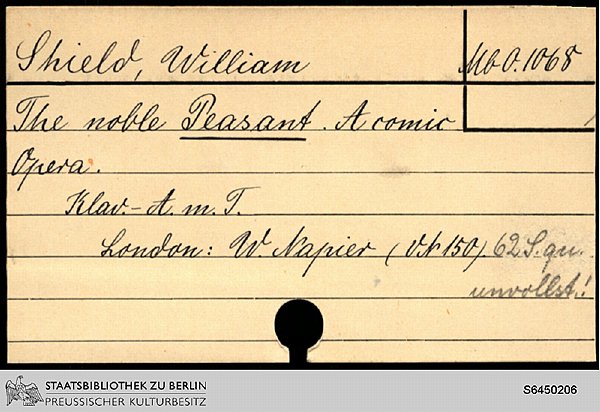 Shield, William Mb O. 1068
The noble Peasant. A comic
Opera.
Klav.-A. m. T.
London: W. Napier (VN 150). 62 S. qu.
unvollst.!
STAATSBIBLIOTHEK ZU BERLIN
PREUSSISCHER KULTURBESITZ
S6450206